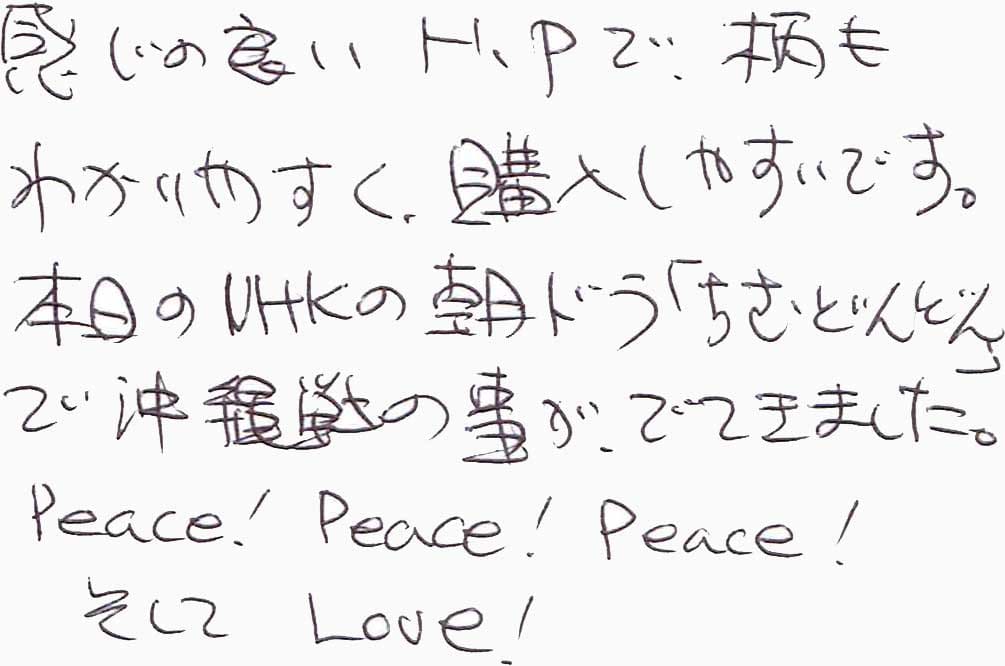 感じの良い H、Pで、柄も
わかりやすく、購入しやすいです。
本日のNHKの朝ドラ「ちむどんどん」
で沖縄戦の事が、でてきました。
Peace! Peace! Peace!
そして Love!